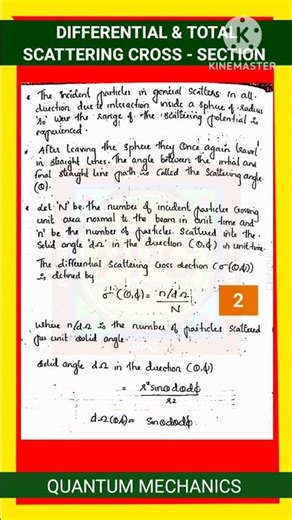 DIFFERENTIAL & TOTAL
SCATTERING CROSS - SECTION
KINEMASTER
The incident particles in general scatters in all
direction due to interaction inside a sphere of radius
'r₀' over the range of the scattering potential is
experienced.
After leaving the sphere they once again travel
in straight lines. The angle between the initial and
final straight line path is called the scattering angle
(θ).
Let 'N' be the number of incident particles crossing
unit area normal to the beam in unit time and
'n' be the number of particles scattered into the
solid angle 'dΩ' in the direction (θ,ϕ) in unit time.
The differential scattering cross section (σ(θ,ϕ))
is defined by
σ(θ,ϕ) = n/dΩ / N
2
where n/dΩ is the number of particles scattered
per unit solid angle.
solid angle dΩ in the direction (θ,ϕ)
= r² sinθ dθ dϕ / r²
dΩ(θ,ϕ) = sinθ dθ dϕ
QUANTUM MECHANICS